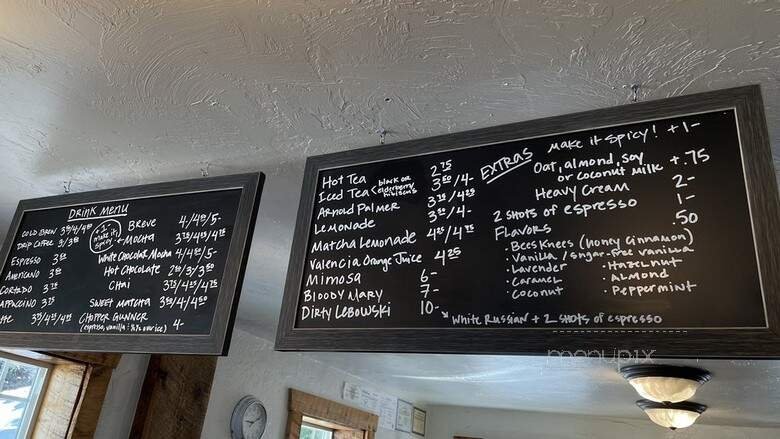 DRINK MENU
COLD BREW
DRIP COFFEE 3/3⁵⁰
ESPRESSO 3⁰⁰
AMERICANO
CORTADO 3⁷⁵
1- make it spicy
BREVE 4/4⁵⁰/5-
MOCHA
White Chocolate Mocha 4/4⁵⁰/5-
Hot Chocolate
CHAI
SWEET MATCHA
CHOPPER GUNNER 4-
(espresso, vanilla
Hot Tea 2⁷⁵
Iced Tea < black or elderberry hibiscus 3⁵⁰/4-
Arnold Palmer
Lemonade 3⁵⁰/4-
Matcha Lemonade 4²⁵/4⁷⁵
Valencia Orange Juice 4²⁵
Mimosa 6-
Bloody Mary 7-
Dirty Lebowski 10-
White Russian + 2 shots of espresso
EXTRAS
make it spicy! +1-
Oat, almond, soy
or coconut milk +.75
Heavy Cream 2-
2 shots of espresso 1-
Flavors .50
· Bees Knees (honey cinnamon)
· Vanilla / sugar-free vanilla
· Lavender · Hazelnut
· Caramel · Almond
· Coconut · Peppermint
menupix